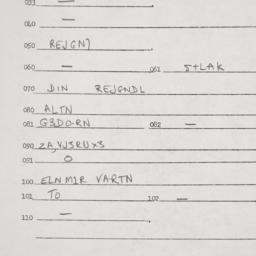 033 —
040 —
050 REJGN7
060 — 061 5+LAK
070 DIN REJGNDL
080 ALTN
081 G3DO-RN 082 —
090 2A,VJ3RUX3
091 O
100 ELNMIR VARTN
101 TO 102 —
110 —